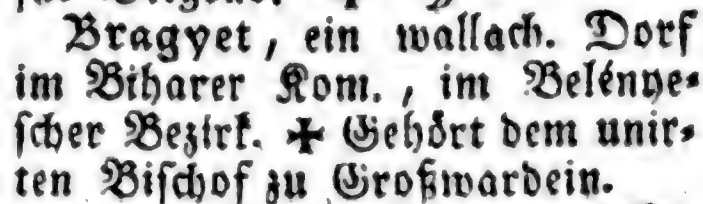 Bragyet, ein wallach. Dorf
im Biharer Kom., im Belénye-
scher Bezirk. ✠ Gehört dem unir-
ten Bischof zu Großwardein.